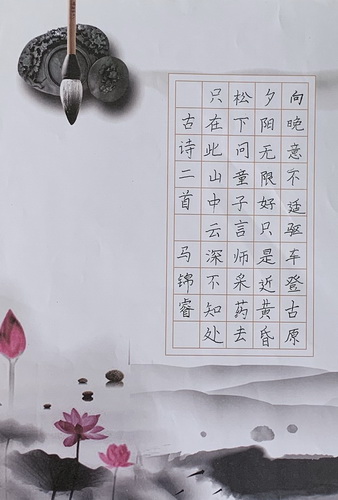 向晚意不适驱车登古原
夕阳无限好只是近黄昏
松下问童子言师采药去
只在此山中云深不知处
古诗二首 马锦睿